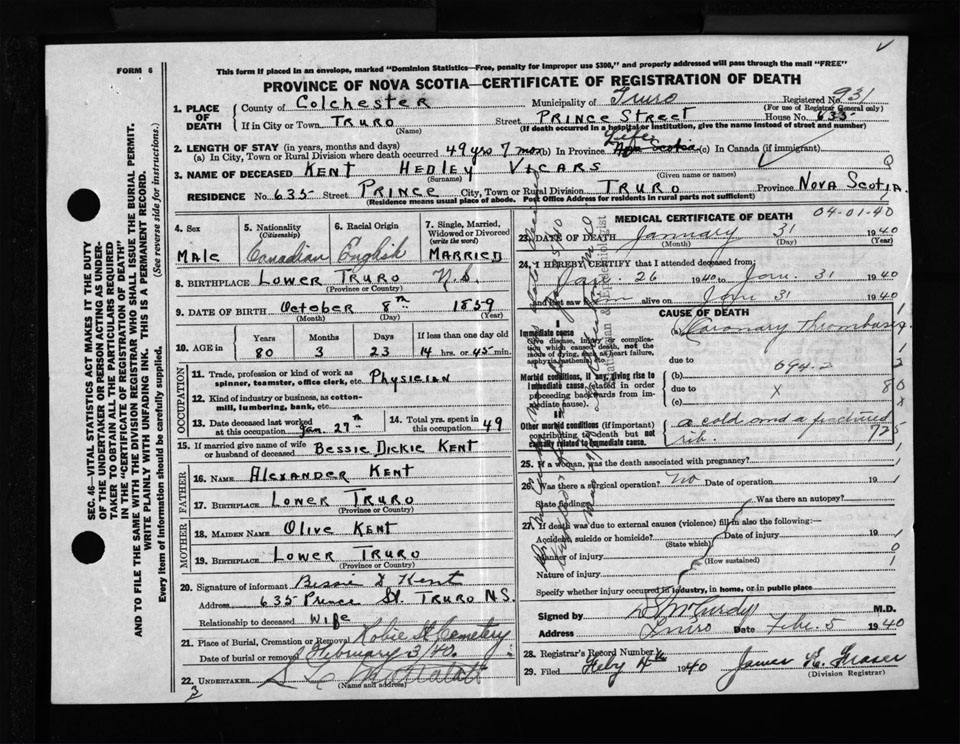 FORM 6
This form if placed in an envelope, marked "Dominion Statistics—Free, penalty for improper use $300," and properly addressed will pass through the mail "FREE"
PROVINCE OF NOVA SCOTIA—CERTIFICATE OF REGISTRATION OF DEATH
1. PLACE OF DEATH
County of Colchester Municipality of Truro Registered No. 931
(For use of Registrar General only)
If in City or Town TRURO Street PRINCE STREET House No. 635
(Name) (If death occurred in a hospital or institution, give the name instead of street and number)
2. LENGTH OF STAY (in years, months and days)
(a) In City, Town or Rural Division where death occurred 49 yrs 7 mo (b) In Province Life Nova Scotia (c) In Canada (if immigrant)
3. NAME OF DECEASED KENT HEDLEY VICARS
(Surname) (Given name or names)
RESIDENCE No. 635 Street PRINCE City, Town or Rural Division TRURO Province NOVA SCOTIA
(Residence means usual place of abode. Post Office Address for residents in rural parts not sufficient)
4. Sex
MALE
5. Nationality (Citizenship)
Canadian
6. Racial Origin
English
7. Single, Married, Widowed or Divorced (write the word)
MARRIED
8. BIRTHPLACE LOWER TRURO N.S.
(Province or Country)
9. DATE OF BIRTH October 8th 1859
(Month) (Day) (Year)
10. AGE in Years Months Days If less than one day old
80 3 23 14 hrs. or 45 min.
OCCUPATION
11. Trade, profession or kind of work as spinner, teamster, office clerk, etc. PHYSICIAN
12. Kind of industry or business, as cotton-mill, lumbering, bank, etc.
13. Date deceased last worked at this occupation Jan. 27th
14. Total yrs. spent in this occupation 49
15. If married give name of wife or husband of deceased BESSIE DICKIE KENT
FATHER
16. NAME ALEXANDER KENT
17. BIRTHPLACE LOWER TRURO
(Province or Country)
MOTHER
18. MAIDEN NAME OLIVE KENT
19. BIRTHPLACE LOWER TRURO
(Province or Country)
20. Signature of informant Bessie D Kent
Address 635 Prince St. TRURO N.S.
Relationship to deceased WIFE
21. Place of Burial, Cremation or Removal Robie St Cemetery
Date of burial or removal February 3/40.
22. UNDERTAKER
(Name and address)
3
MEDICAL CERTIFICATE OF DEATH
04-01-40
23. DATE OF DEATH January 31 1940
(Month) (Day) (Year)
24. I HEREBY CERTIFY that I attended deceased from:
Jan. 26 1940 to Jan. 31 1940
and last saw him alive on Jan 31 1940
CAUSE OF DEATH
Immediate cause
Give disease, injury or complication which caused death, not the mode of dying, such as heart failure, asphyxia, asthenia, etc.
(a) Coronary Thrombosis
due to
094.2
Morbid conditions, if any, giving rise to immediate cause, stated in order proceeding backwards from immediate cause).
(b)
due to X
(c)
80
Other morbid conditions (if important) contributing to death but not causally related to immediate cause.
a cold and a fractured rib.
725
25. If a woman, was the death associated with pregnancy?
26. Was there a surgical operation? No Date of operation 19
State findings Was there an autopsy?
27. If death was due to external causes (violence) fill in also the following:—
Accident, suicide or homicide? Date of injury 19
(State which)
Manner of injury
(How sustained)
Nature of injury
Specify whether injury occurred in industry, in home, or in public place
Signed by D S McCurdy M.D.
Address Truro Date Feb. 5 1940
28. Registrar's Record Number
29. Filed Feby 4th 1940 James E. Fraser
(Division Registrar)
SEC. 46—VITAL STATISTICS ACT MAKES IT THE DUTY
OF THE UNDERTAKER OR PERSON ACTING AS UNDER-
TAKER TO OBTAIN ALL THE PARTICULARS REQUIRED
IN THE "CERTIFICATE OF REGISTRATION OF DEATH"
AND TO FILE THE SAME WITH THE DIVISION REGISTRAR WHO SHALL ISSUE THE BURIAL PERMIT.
WRITE PLAINLY WITH UNFADING INK. THIS IS A PERMANENT RECORD.
Every item of information should be carefully supplied. (See reverse side for instructions.)